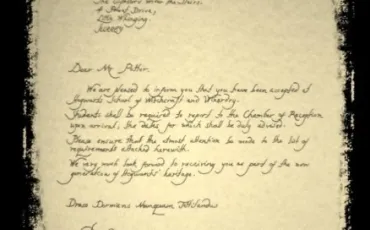 The Cupboard Under the Stairs,
4 Privet Drive,
Little Whinging,
Surrey
Dear Mr Potter,
We are pleased to inform you that you have been accepted at
Hogwarts School of Witchcraft and Wizardry.
Students shall be required to report to the Chamber of Reception
upon arrival, the dates for which shall be duly advised.
Please ensure that the utmost attention be made to the list of
requirements attached herewith.
We very much look forward to receiving you as part of the new
generation of Hogwarts' heritage.
Draco Dormiens Nunquam Titillandus